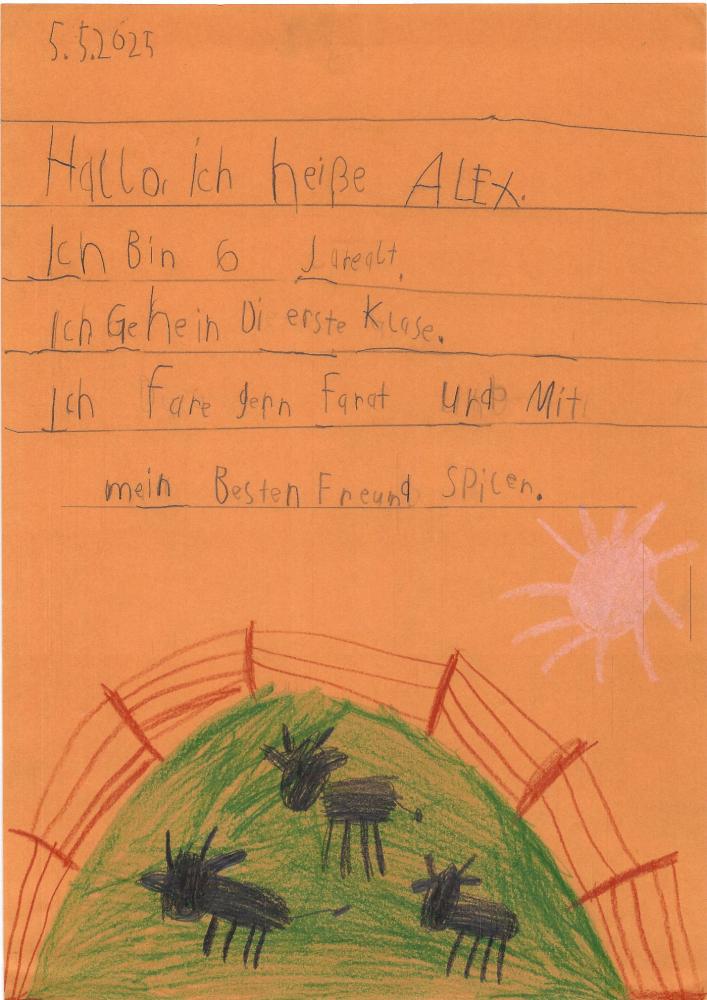 5.5.2025
Hallo, ich heiße ALEX.
Ich Bin 6 Jarealt.
Ich Gehein Di erste Klase.
Ich fare gern Farat und Mit
mein Besten Freund SPilen.